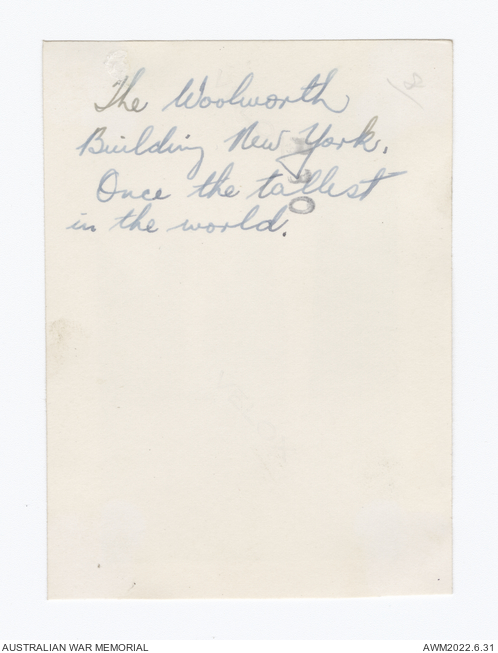 The Woolworth
Building New York.
Once the tallest
in the world.
AUSTRALIAN WAR MEMORIAL
AWM2022.6.31